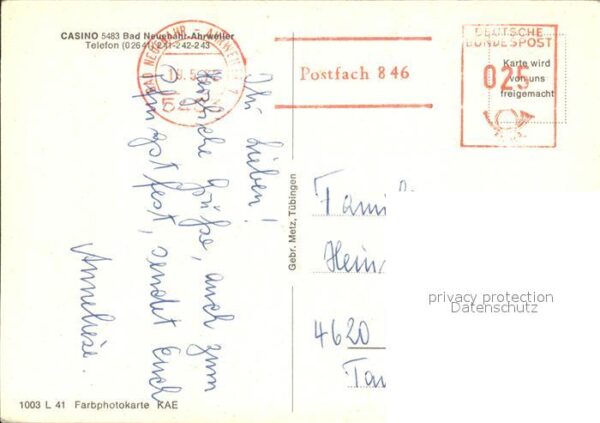 CASINO 5483 Bad Neuenahr-Ahrweiler
Telefon (02641) 241-242-243
BAD NEUENAHR - AHRWEILER 1
Postfach 846
DEUTSCHE
BUNDESPOST
025
Karte wird
von uns
freigemacht
Ihr Lieben!
Herzliche Grüße, auch zum
Pfingstfest, sendet Euch
Anneliese.
Gebr. Metz, Tübingen
Fami
Hein
4620
privacy protection
Datenschutz
1003 L 41 Farbphotokarte KAE